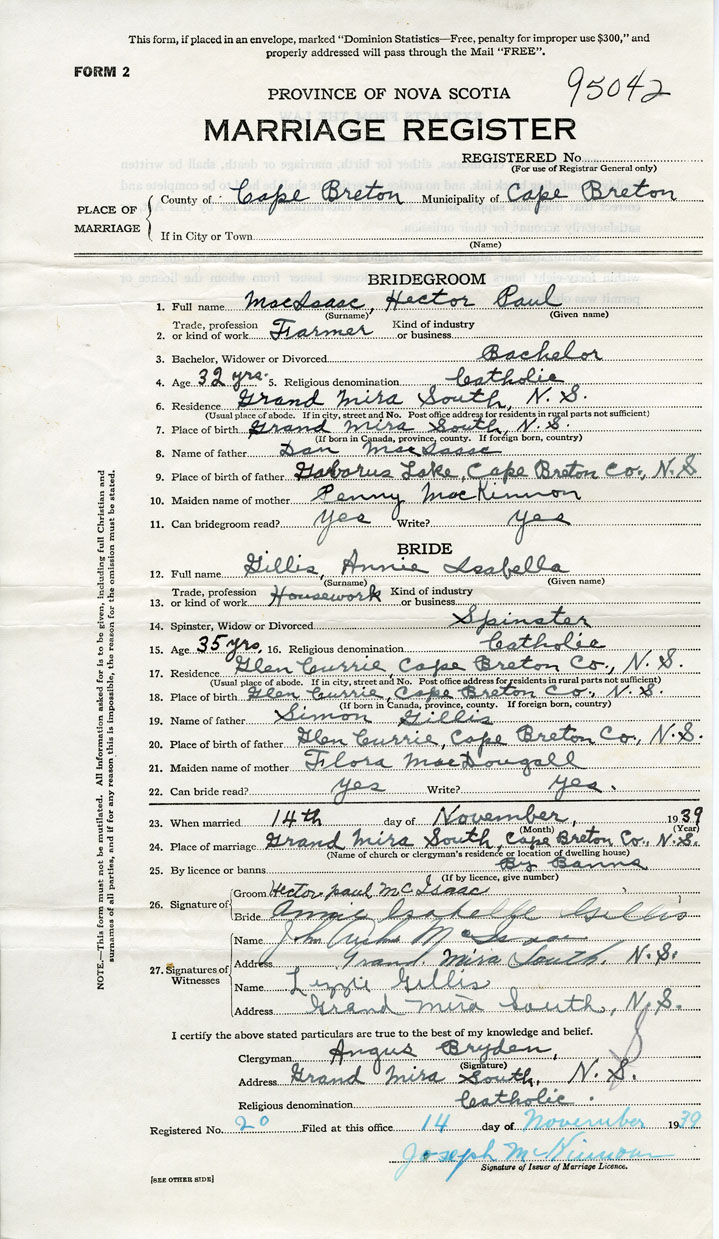 This form, if placed in an envelope, marked "Dominion Statistics—Free, penalty for improper use $300," and
properly addressed will pass through the Mail "FREE".
FORM 2
95042
PROVINCE OF NOVA SCOTIA
MARRIAGE REGISTER
REGISTERED No.
(For use of Registrar General only)
PLACE OF MARRIAGE
County of Cape Breton Municipality of Cape Breton
If in City or Town
(Name)
BRIDEGROOM
1. Full name MacIsaac, Hector Paul
(Surname) (Given name)
2. Trade, profession or kind of work Farmer Kind of industry or business
3. Bachelor, Widower or Divorced Bachelor
4. Age 32 yrs. 5. Religious denomination Catholic
6. Residence Grand Mira South, N. S.
(Usual place of abode. If in city, street and No. Post office address for residents in rural parts not sufficient)
7. Place of birth Grand Mira South, N. S.
(If born in Canada, province, county. If foreign born, country)
8. Name of father Dan MacIsaac
9. Place of birth of father Gabarus Lake, Cape Breton Co., N. S
10. Maiden name of mother Penny MacKinnon
11. Can bridegroom read? Yes Write? yes
BRIDE
12. Full name Gillis, Annie Isabella
(Surname) (Given name)
13. Trade, profession or kind of work Housework Kind of industry or business
14. Spinster, Widow or Divorced Spinster
15. Age 35 yrs. 16. Religious denomination Catholic
17. Residence Glen Currie, Cape Breton Co., N. S.
(Usual place of abode. If in city, street and No. Post office address for residents in rural parts not sufficient)
18. Place of birth Glen Currie, Cape Breton Co., N. S.
(If born in Canada, province, county. If foreign born, country)
19. Name of father Simon Gillis
20. Place of birth of father Glen Currie, Cape Breton Co., N. S.
21. Maiden name of mother Flora MacDougall
22. Can bride read? Yes Write? Yes.
23. When married 14th day of November, 1939
(Month) (Year)
24. Place of marriage Grand Mira South, Cape Breton Co., N. S.
(Name of church or clergyman's residence or location of dwelling house)
25. By licence or banns By Banns
(If by licence, give number)
26. Signature of
Groom Hector paul McIsaac
Bride Annie Isabelle Gillis
27. Signatures of Witnesses
Name John McIsaac
Address Grand Mira South, N. S.
Name Lizzie Gillis
Address Grand Mira South, N. S.
I certify the above stated particulars are true to the best of my knowledge and belief.
Clergyman Angus Bryden,
(Signature)
Address Grand Mira South, N. S.
Religious denomination Catholic.
Registered No. 20 Filed at this office 14 day of November 1939
Joseph McKinnon
Signature of Issuer of Marriage Licence.
[SEE OTHER SIDE]
NOTE.—This form must not be mutilated. All information asked for is to be given, including full Christian and
surnames of all parties, and if for any reason this is impossible, the reason for the omission must be stated.